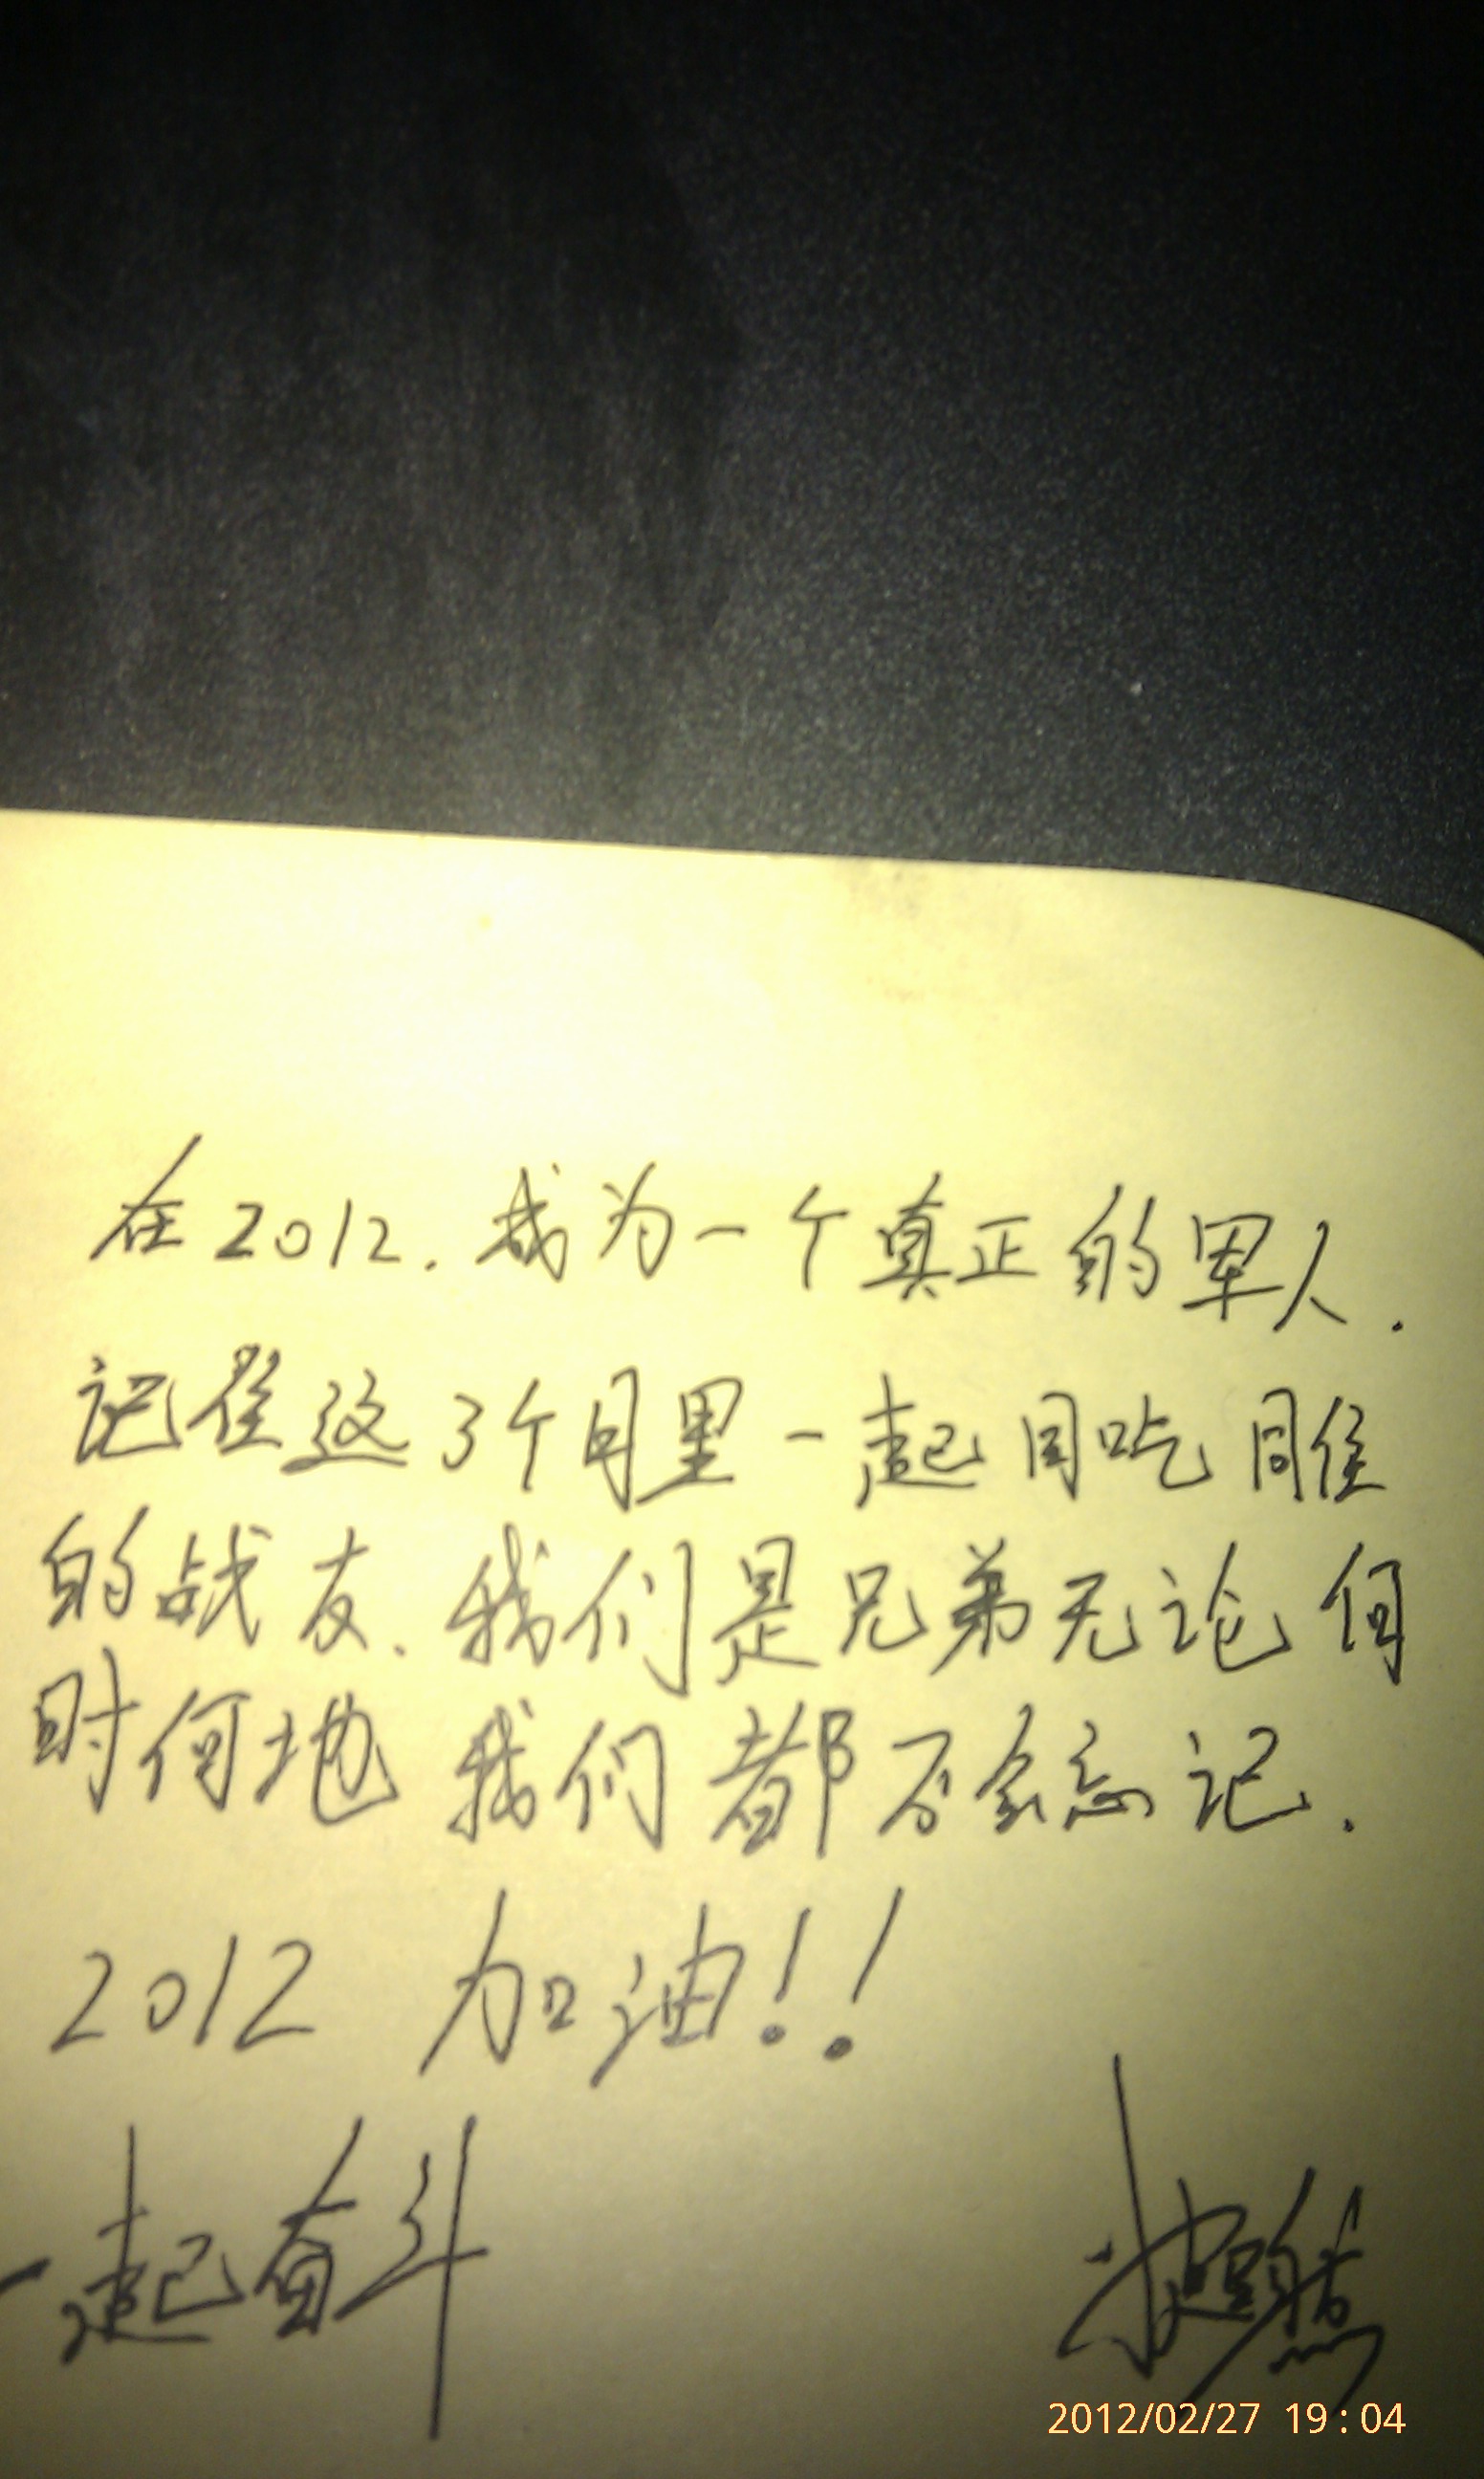 在2012.成为一个真正的军人.
记住这3个月里一起同吃同住
的战友.我们是兄弟无论何
时何地 我们都不会忘记.
2012 加油!!
一起奋斗
2012/02/27 19:04